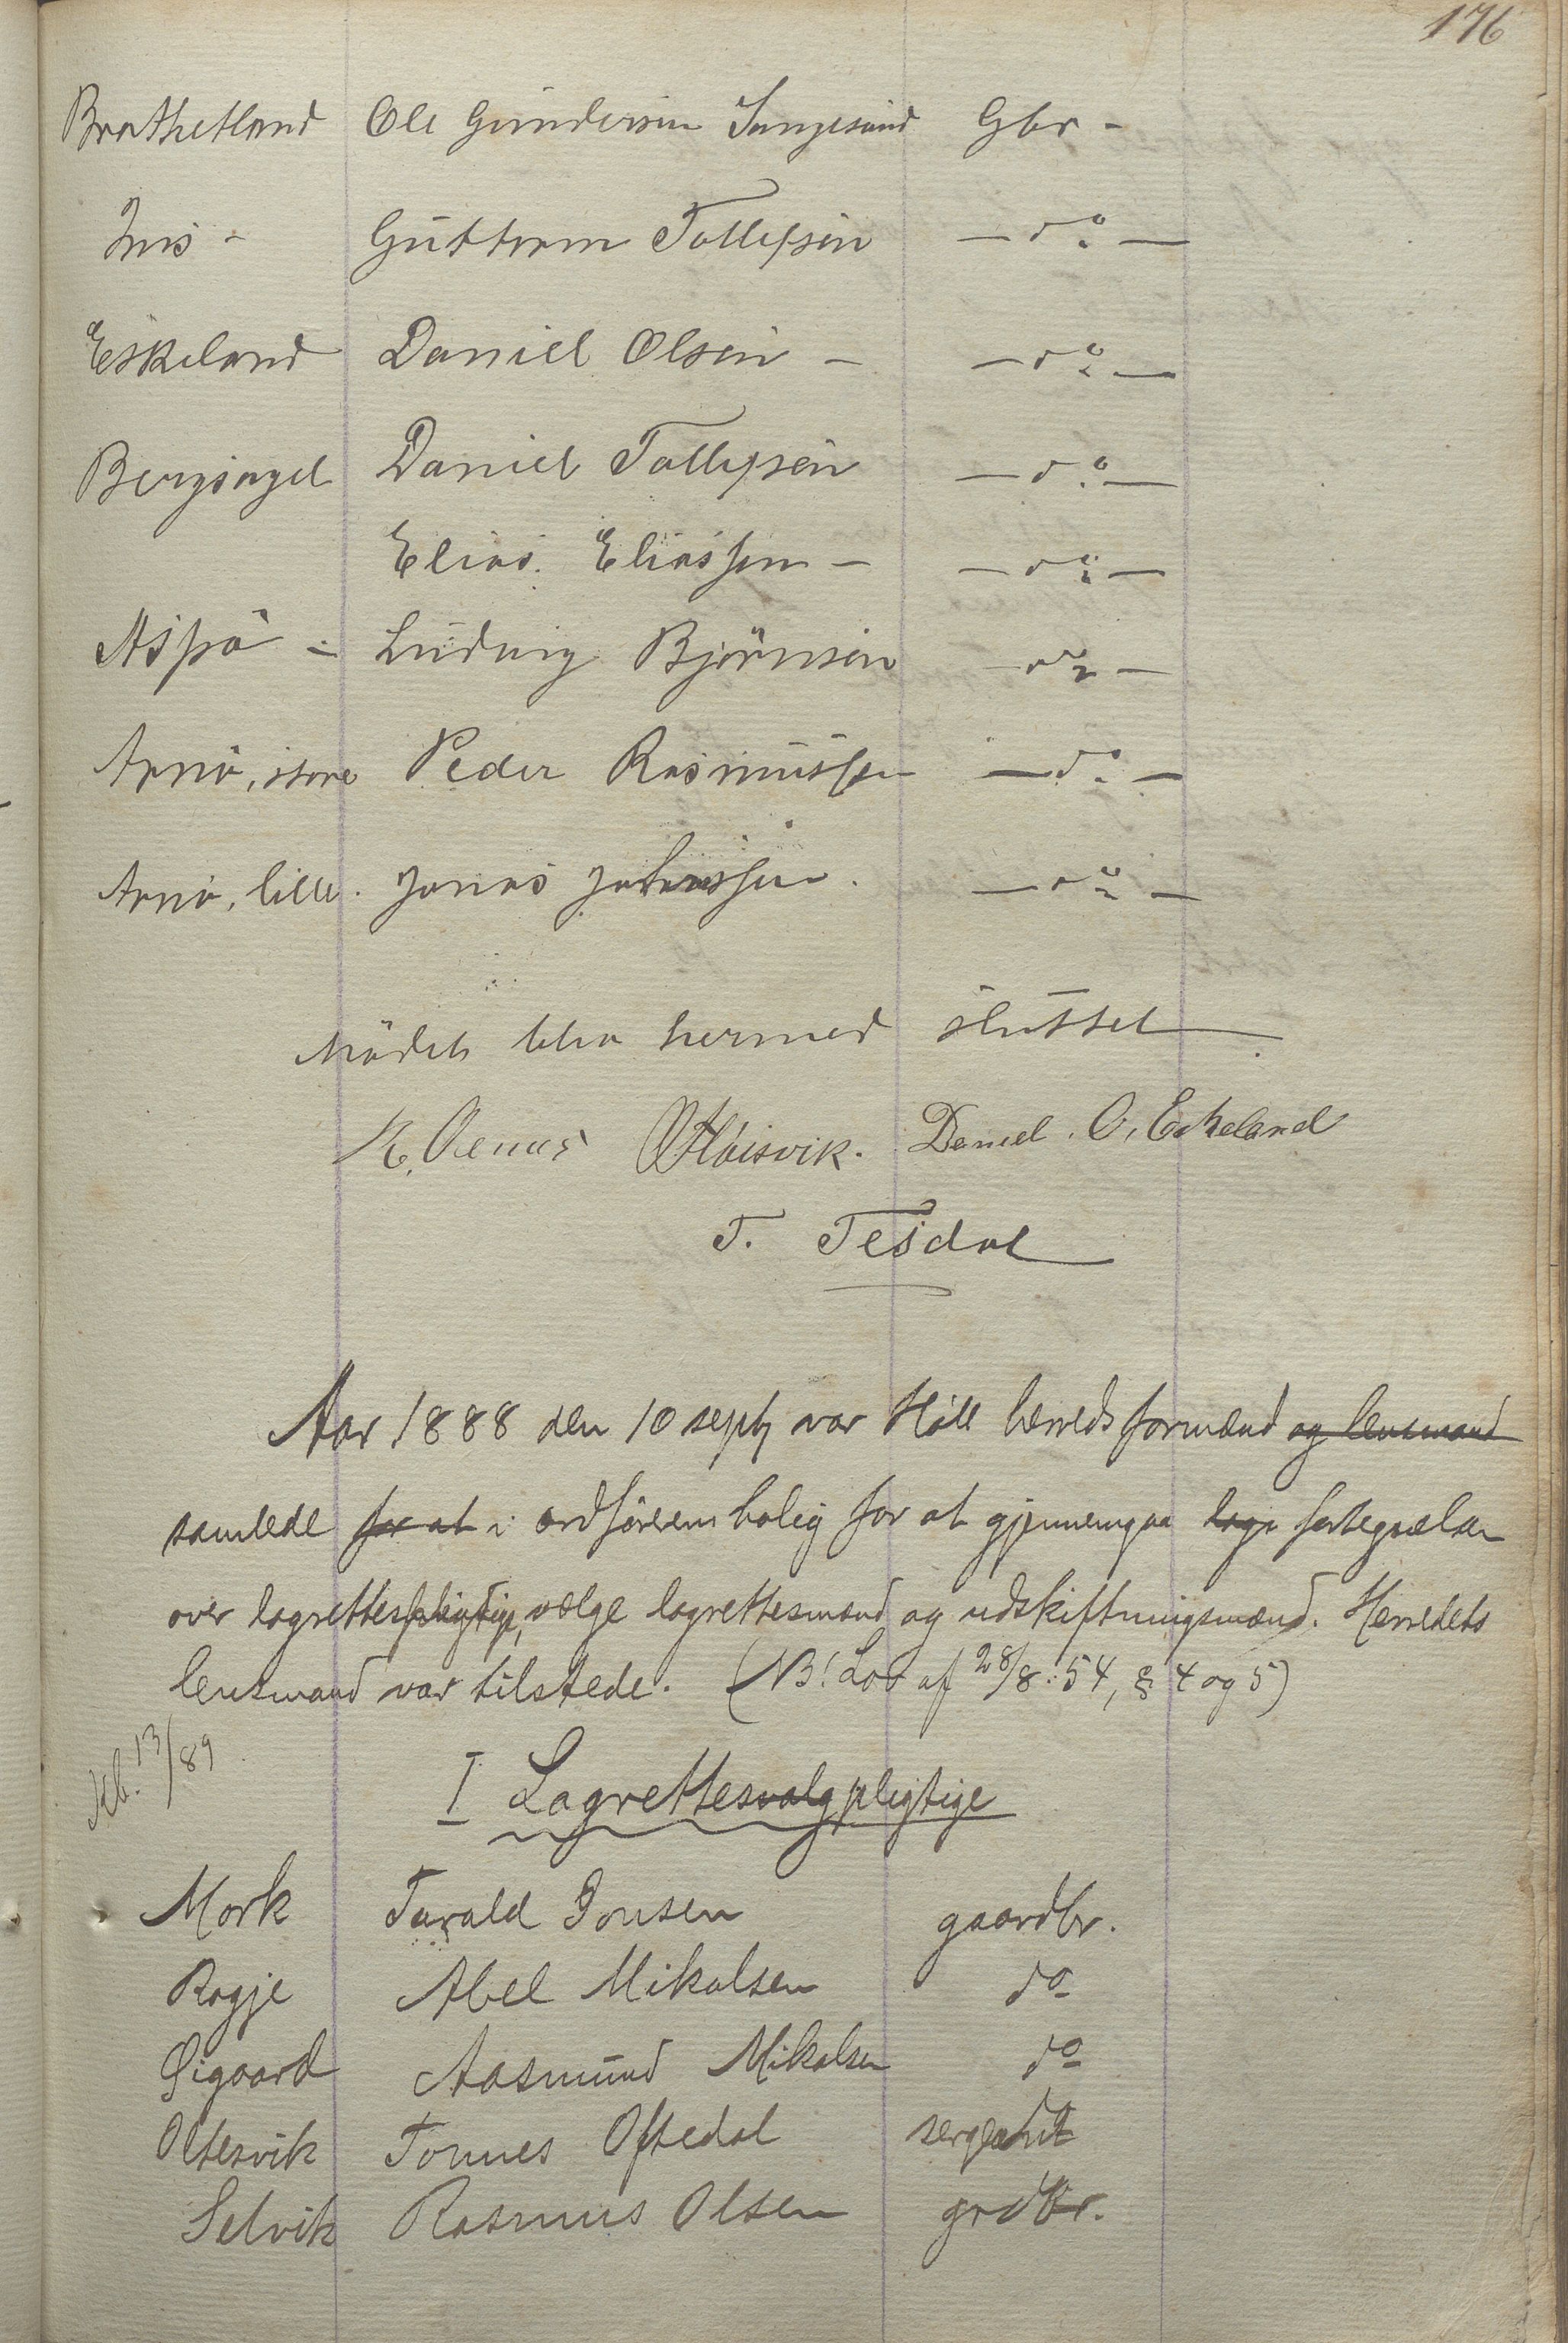 176
Brathetland Ole Gundersen Gbr -
Hus - Guttorm Tollefsen — do —
Eskeland Daniel Olsen - — do —
Bergsagel Daniel Tollefsen — do —
Elias Eliassen - — do —
Aspø - Ludvig Bjørnsen — do —
Arnø, store Peder Rasmussen — do —
Arnø, lille. Jonas — do —
Mødet blev hermed sluttet
Høisvik. Daniel. O, Eskeland
T. Tesdal
Aar 1888 den 10 septb var Høle herredsformænd og lensmand
samlede for at i ordførerens bolig for at gjennemgaa fortegnelsen
over lagrettespligtige, vælge lagrettesmænd og udskiftningsmænd. Herredets
lensmand var tilstede. (NB! Lov af 28/8: 54, § 4 og 5)
13/89
I Lagrettesvalgpligtige
Mork Tarald Jonsen gaardbr.
Ragje Abel Mikalsen do
Øigaard Aasmund Mikalsen do
Oltesvik Tonnes Oftedal sergeant
Selvik Rasmus Olsen grdbr.